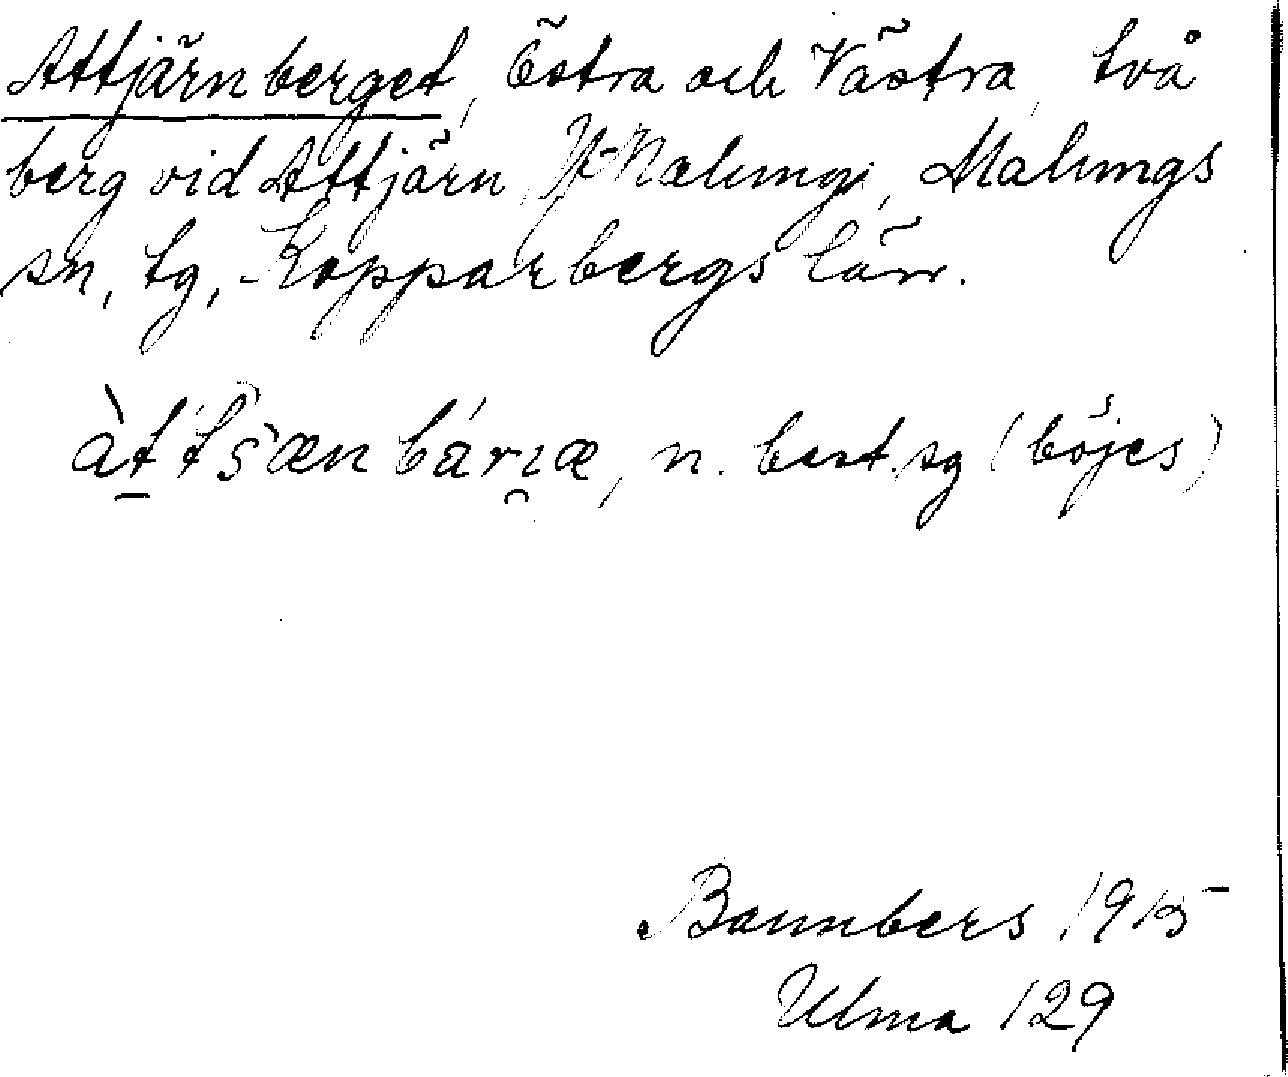 Attjärnberget, Östra och Västra, två
berg vid Attjärn, Y-Malung, Malungs
sn, tg, Kopparbergs län.
àttšæn bárıæ, n. best. sg (böjes)
Bannbers 1915
Ulma 129